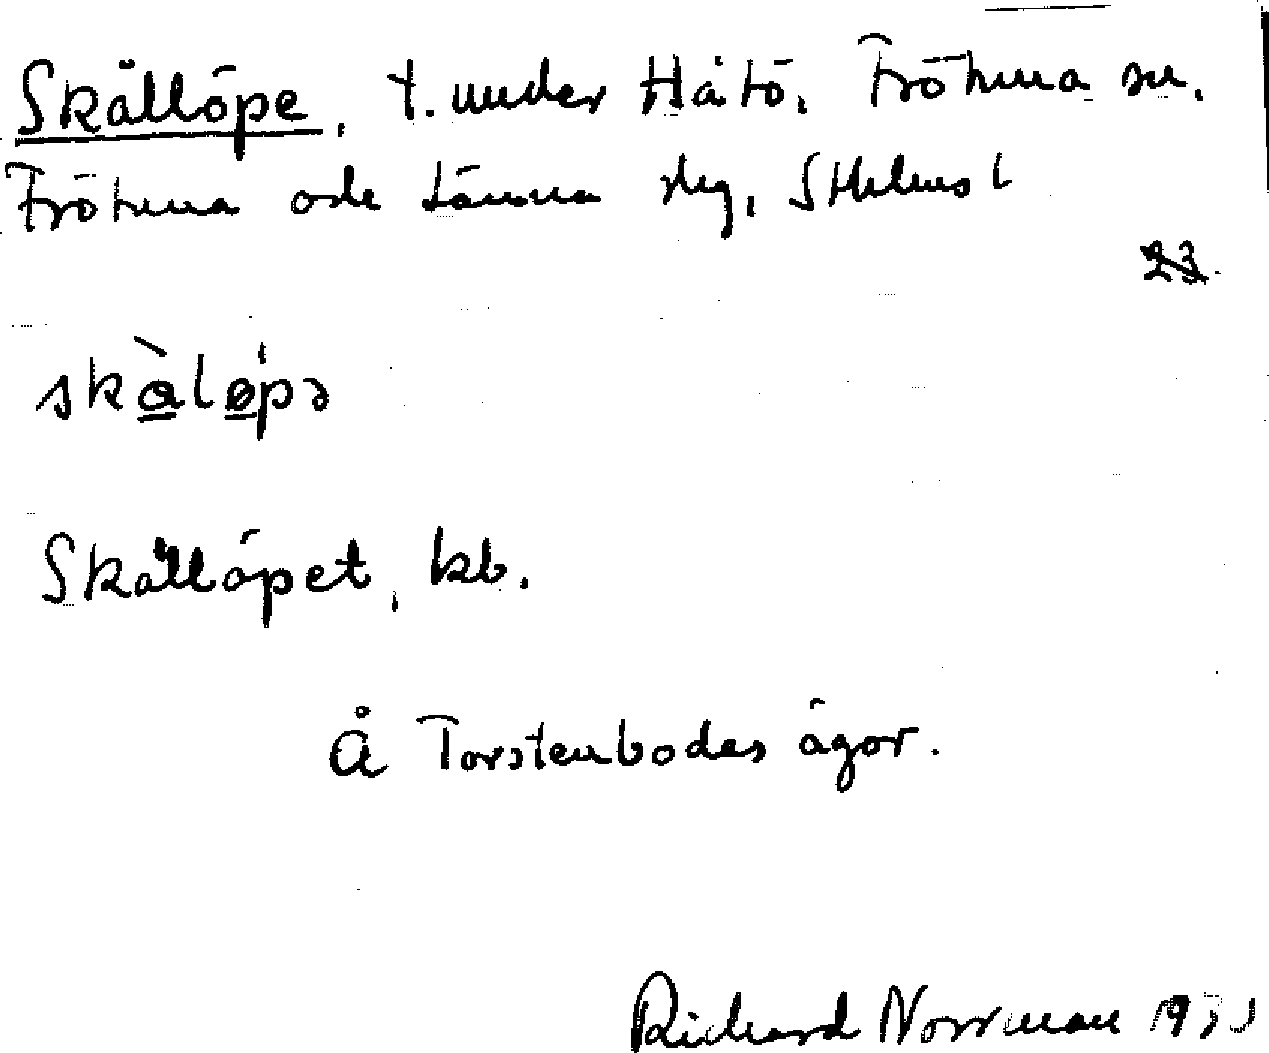 Skällöpe, t. under Håtö, Frötuna sn.
Frötuna och Länna slg, Sthlms l
23.
skàlø̀pə
Skällöpet, kb.
Å Torstenbodes ägor.
Richard Norrman